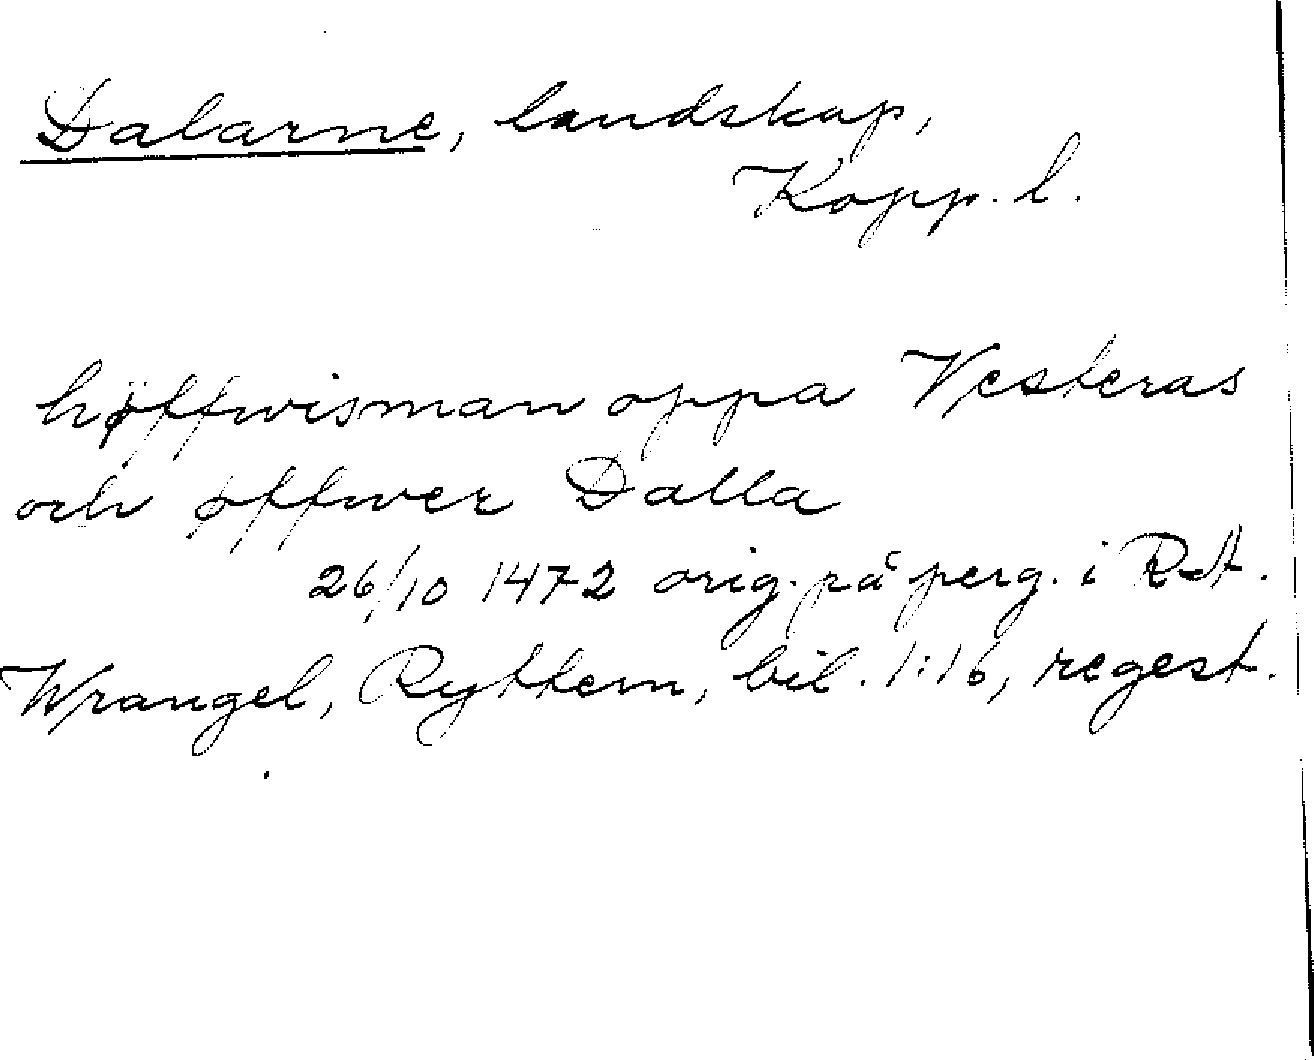 Dalarne, landskap,
Kopp. l.
høffwisman oppa Vesteras
och øffwer Dalla
26/10 1472 orig. på perg. i RA.
Wrangel, Ryttern, bil. 1:16, regest.